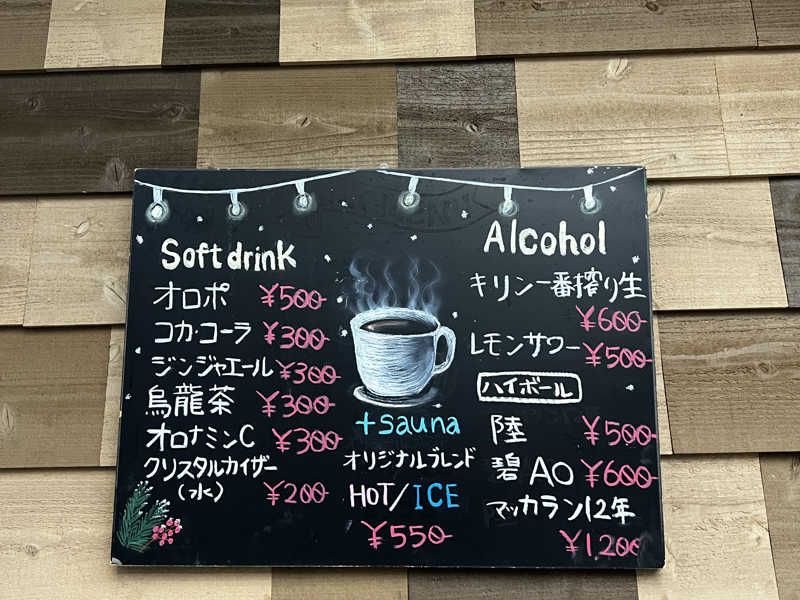 Soft drink
オロポ ¥500-
コカ・コーラ ¥300-
ジンジャエール ¥300-
烏龍茶 ¥300-
オロナミンC ¥300-
クリスタルカイザー
(水) ¥200-
+sauna
オリジナルブレンド
HOT/ICE
¥550-
Alcohol
キリン一番搾り生
¥600-
レモンサワー ¥500-
ハイボール
陸 ¥500-
碧AO ¥600-
マッカラン12年
¥1,200-